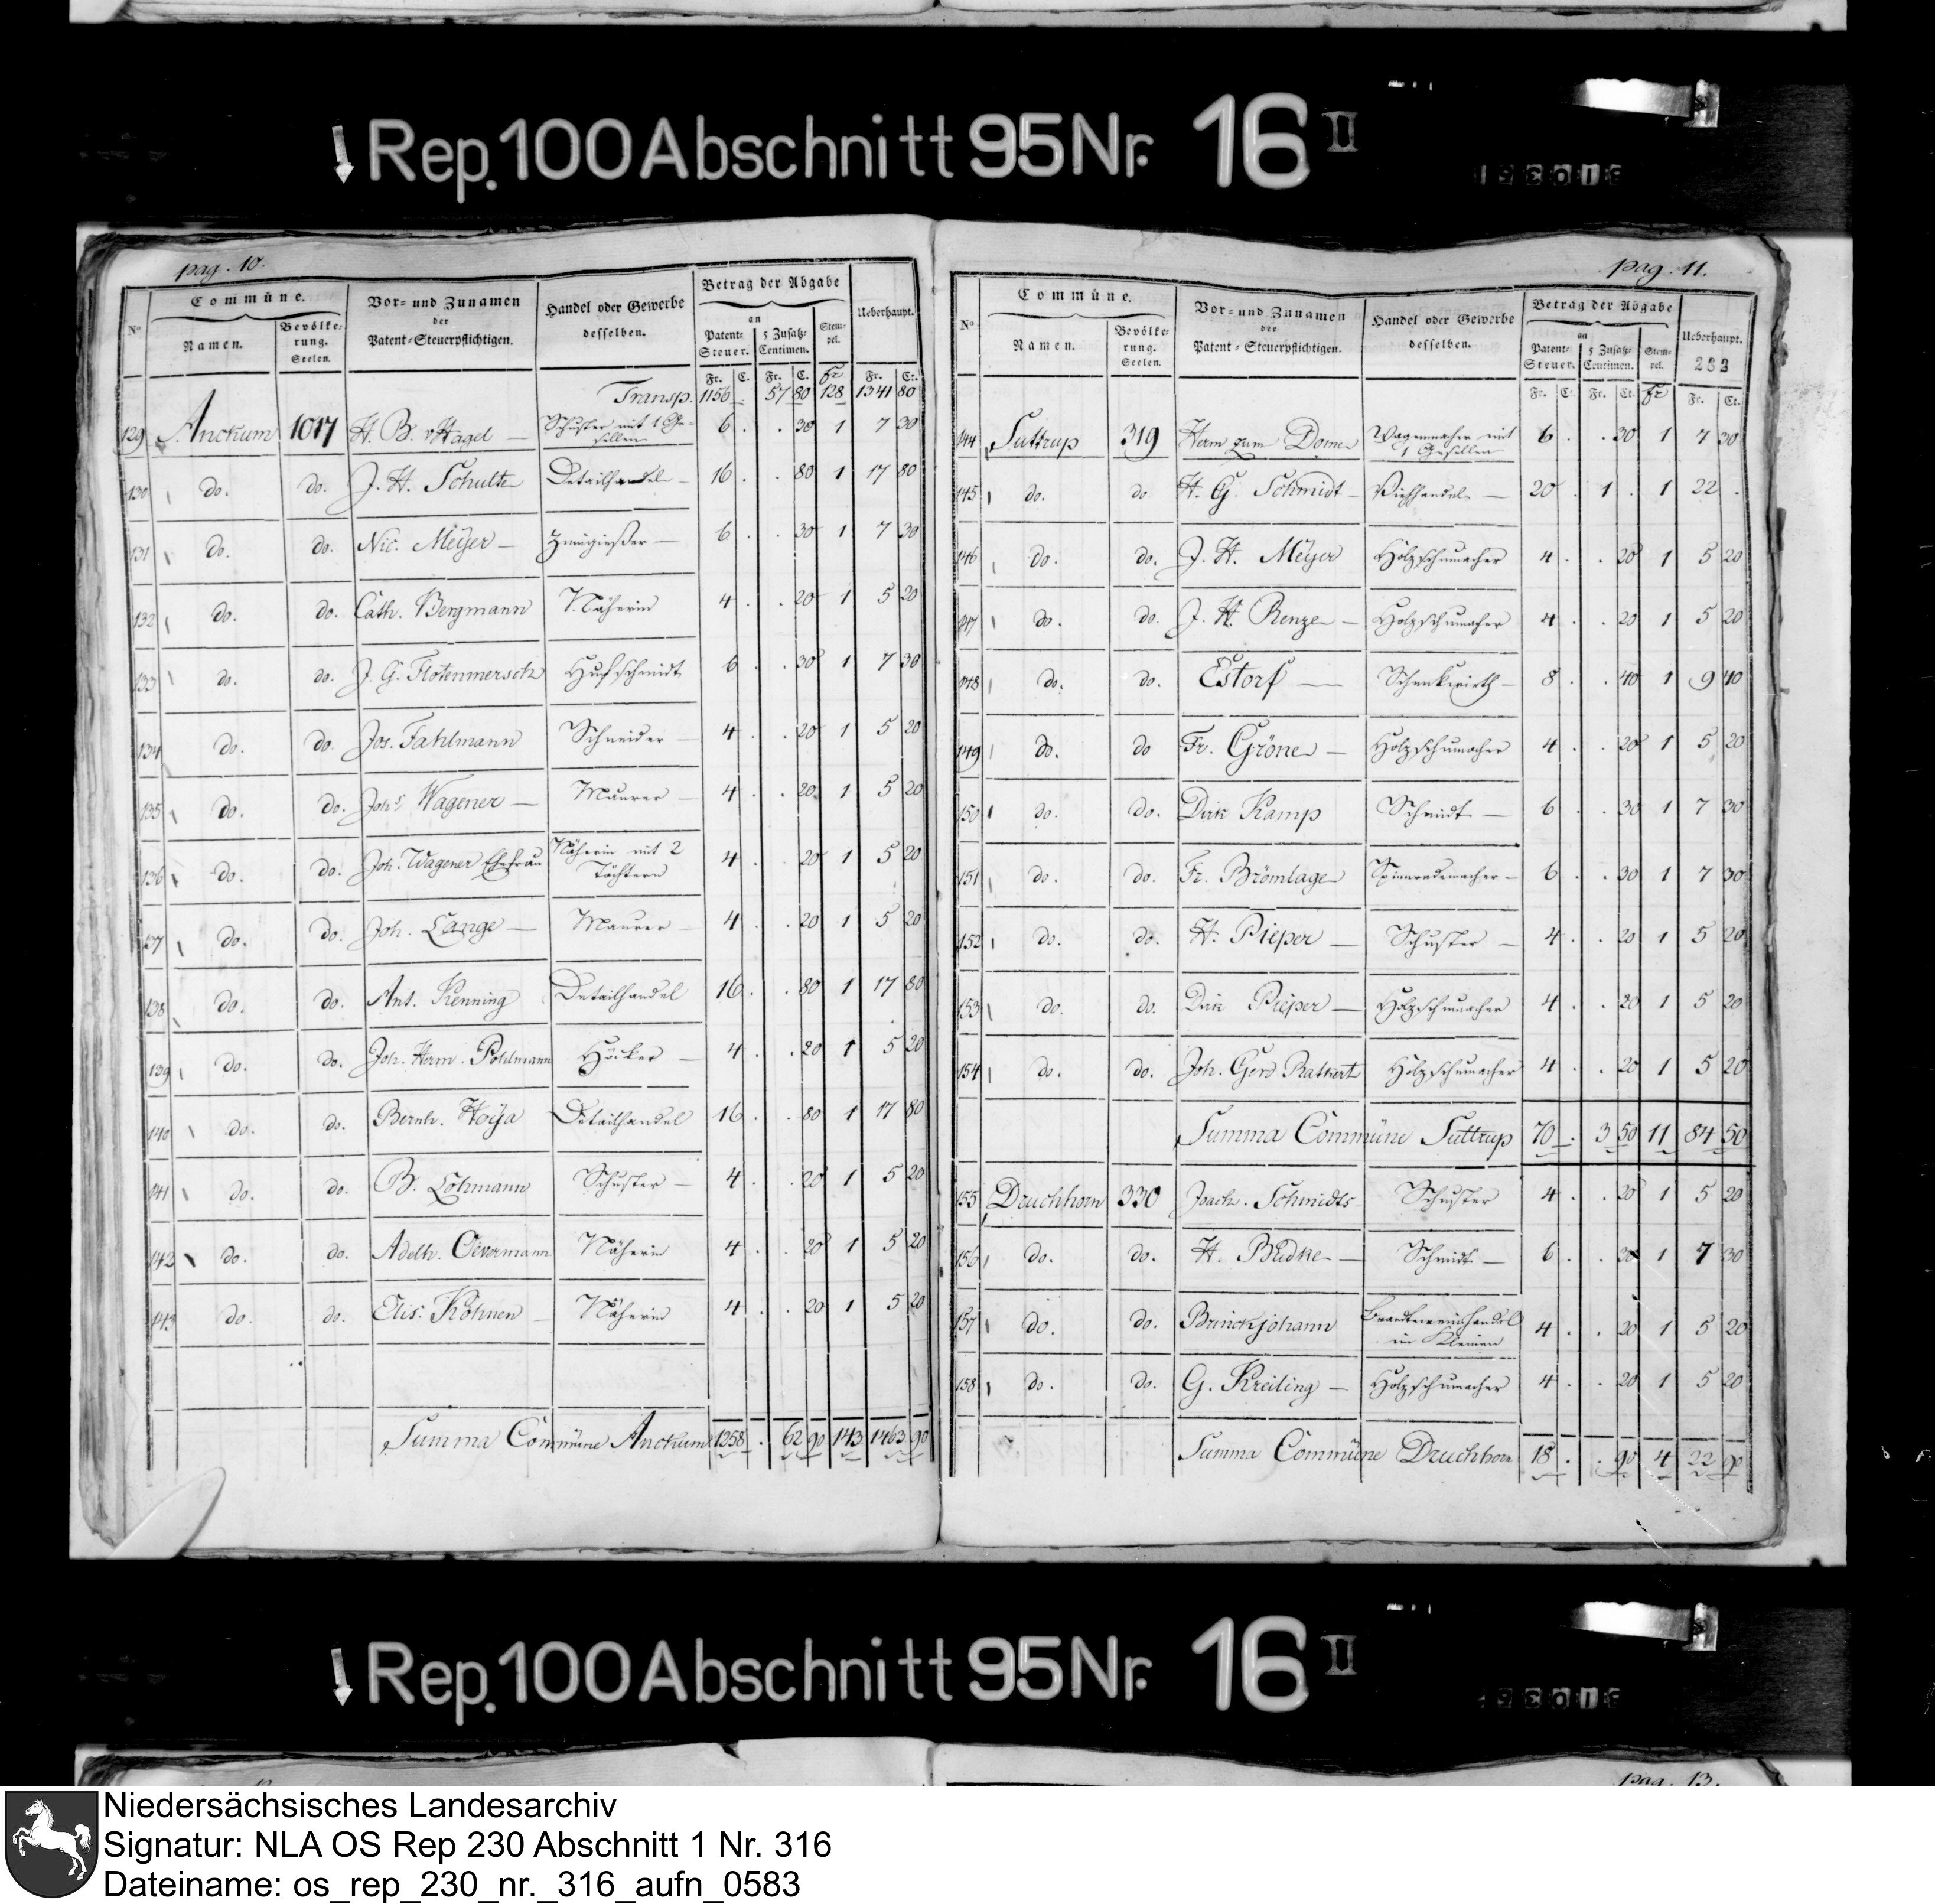 Rep. 100 Abschnitt 95 Nr. 16 II
pag. 10.
No Commüne. Vor- und Zunamen der Patent-Steuerpflichtigen. Handel oder Gewerbe desselben. Betrag der Abgabe an Ueberhaupt.
Namen. Bevölkerung. Seelen. Patent-Steuer. 5 Zusatz-Centimen. Stempel.
Fr. C. Fr. C. Fr Fr. Ct.
Transp. 1156 . 57 80 128 1341 80
129 Anckum 1017 H. B. v Hagel — Schuster mit 1 Gesellen 6 . . 30 1 7 30
130 do. do. J. H. Schulte Detailhandel — 16 . . 80 1 17 80
131 do. do. Nic. Meÿer — Zinngießer — 6 . . 30 1 7 30
132 do. do. Cath. Bergmann Näherin 4 . . 20 1 5 20
133 do. do. J. G. Flotenmersch Hufschmidt 6 . . 30 1 7 30
134 do. do. Jos. Fahlmann Schneider — 4 . . 20 1 5 20
135 do. do. Johs Wagener — Maurer — 4 . . 20 1 5 20
136 do. do. Joh. Wagener Ehefrau Näherin mit 2 Töchtern 4 . . 20 1 5 20
137 do. do. Joh. Lange — Maurer — 4 . . 20 1 5 20
138 do. do. Ant. Kenning Detailhandel 16 . . 80 1 17 80
139 do. do. Joh. Herm. Pohlmann Höcker — 4 . . 20 1 5 20
140 do. do. Bernh. Hoÿa Detailhandel 16 . . 80 1 17 80
141 do. do. B. Lohmann Schuster — 4 . . 20 1 5 20
142 do. do. Adelh. Oevermann Näherin 4 . . 20 1 5 20
143 do. do. Elis. Kohnen — Näherin 4 . . 20 1 5 20
Summa Commüne Anckum 1258 . 62 90 143 1463 90
pag. 11.
No Commüne. Vor- und Zunamen der Patent-Steuerpflichtigen. Handel oder Gewerbe desselben. Betrag der Abgabe an Ueberhaupt.
Namen. Bevölkerung. Seelen. Patent-Steuer. 5 Zusatz-Centimen. Stempel. 283
Fr. Ct. Fr. Ct. Fr Fr. Ct.
144 Suttrup 319 Herm zum Dome Wagenmacher mit 1 Gesellen 6 . . 30 1 7 30
145 do. do H. G. Schmidt — Viehhandel — 20 . 1 . 1 22 .
146 do. do. J. H. Meÿer Holzschumacher 4 . . 20 1 5 20
147 do. do. J. H. Renze — Holzschumacher 4 . . 20 1 5 20
148 do. do. Estorf — Schenkwirth — 8 . . 40 1 9 40
149 do. do Fr. Gröne — Holzschumacher 4 . . 20 1 5 20
150 do. do. Dirk Kamp Schmidt — 6 . . 30 1 7 30
151 do. do. Fr. Brömlage Spinnrademacher — 6 . . 30 1 7 30
152 do. do. H. Pieper — Schuster — 4 . . 20 1 5 20
153 do. do. Dirk Pieper — Holzschumacher 4 . . 20 1 5 20
154 do. do. Joh. Gerd Ratkert Holzschumacher 4 . . 20 1 5 20
Summa Commüne Suttrup 70 . 3 50 11 84 50
155 Druchhorn 330 Joach. Schmidts Schuster 4 . . 20 1 5 20
156 do. do. H. Budke — Schmidt — 6 . . 30 1 7 30
157 do. do. Brinckjohann Brandteweinhandel im Kleinen 4 . . 20 1 5 20
158 do. do. G. Kreiling — Holzschumacher 4 . . 20 1 5 20
Summa Commüne Druchhorn 18 . . 90 4 22 90
Rep. 100 Abschnitt 95 Nr. 16 II
pag. 13.
Niedersächsisches Landesarchiv
Signatur: NLA OS Rep 230 Abschnitt 1 Nr. 316
Dateiname: os_rep_230_nr._316_aufn_0583